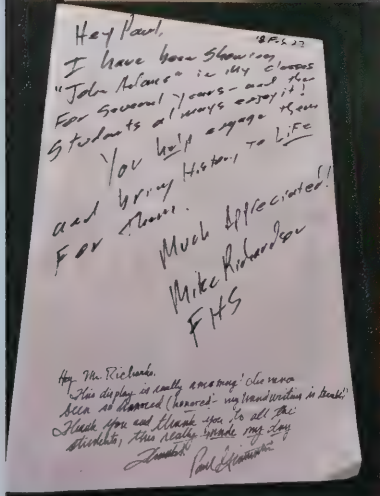 '8 Feb 23
Hey Paul,
I have been showing
"John Adams" in my classes
For several years - and the
students always enjoy it!
You help engage them
and bring History to Life
For Them.
Much Appreciated!!
Mike Richardson
FHS
Hey Mr. Richards.
This display is really amazing! I've never
been so honored (honored - my handwriting is terrible)
Thank you and thank you to all the
students, this really made my day
Paul Giamatti